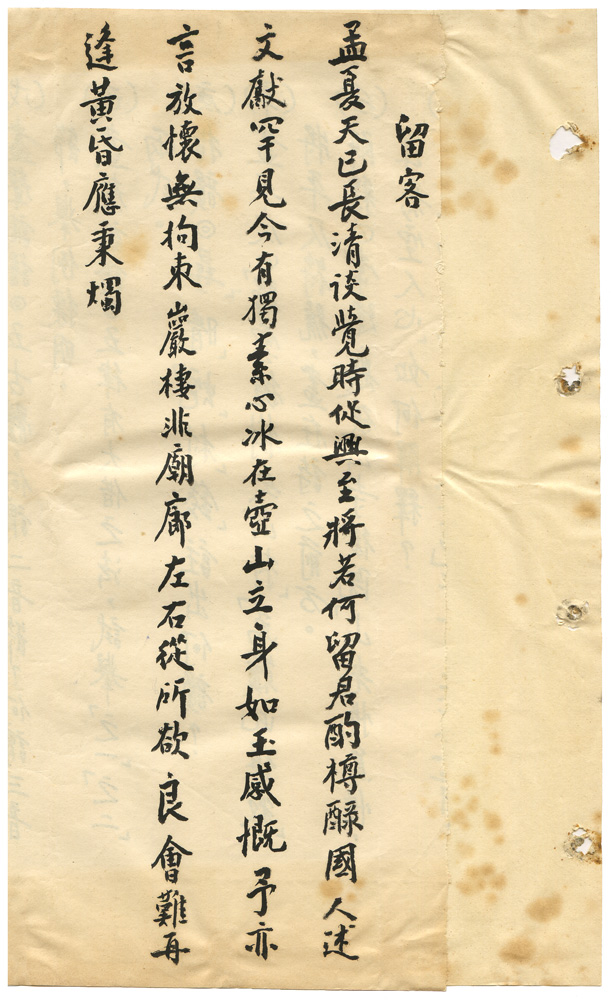 留客
孟夏天已長清談覺時促興至將若何留君酌樽醁國人述
文獻罕見今有獨素心冰在壺山立身如玉感慨予亦
言放懷無拘束巖棲非廟廊左右從所欲良會難再
逢黃昏應秉燭